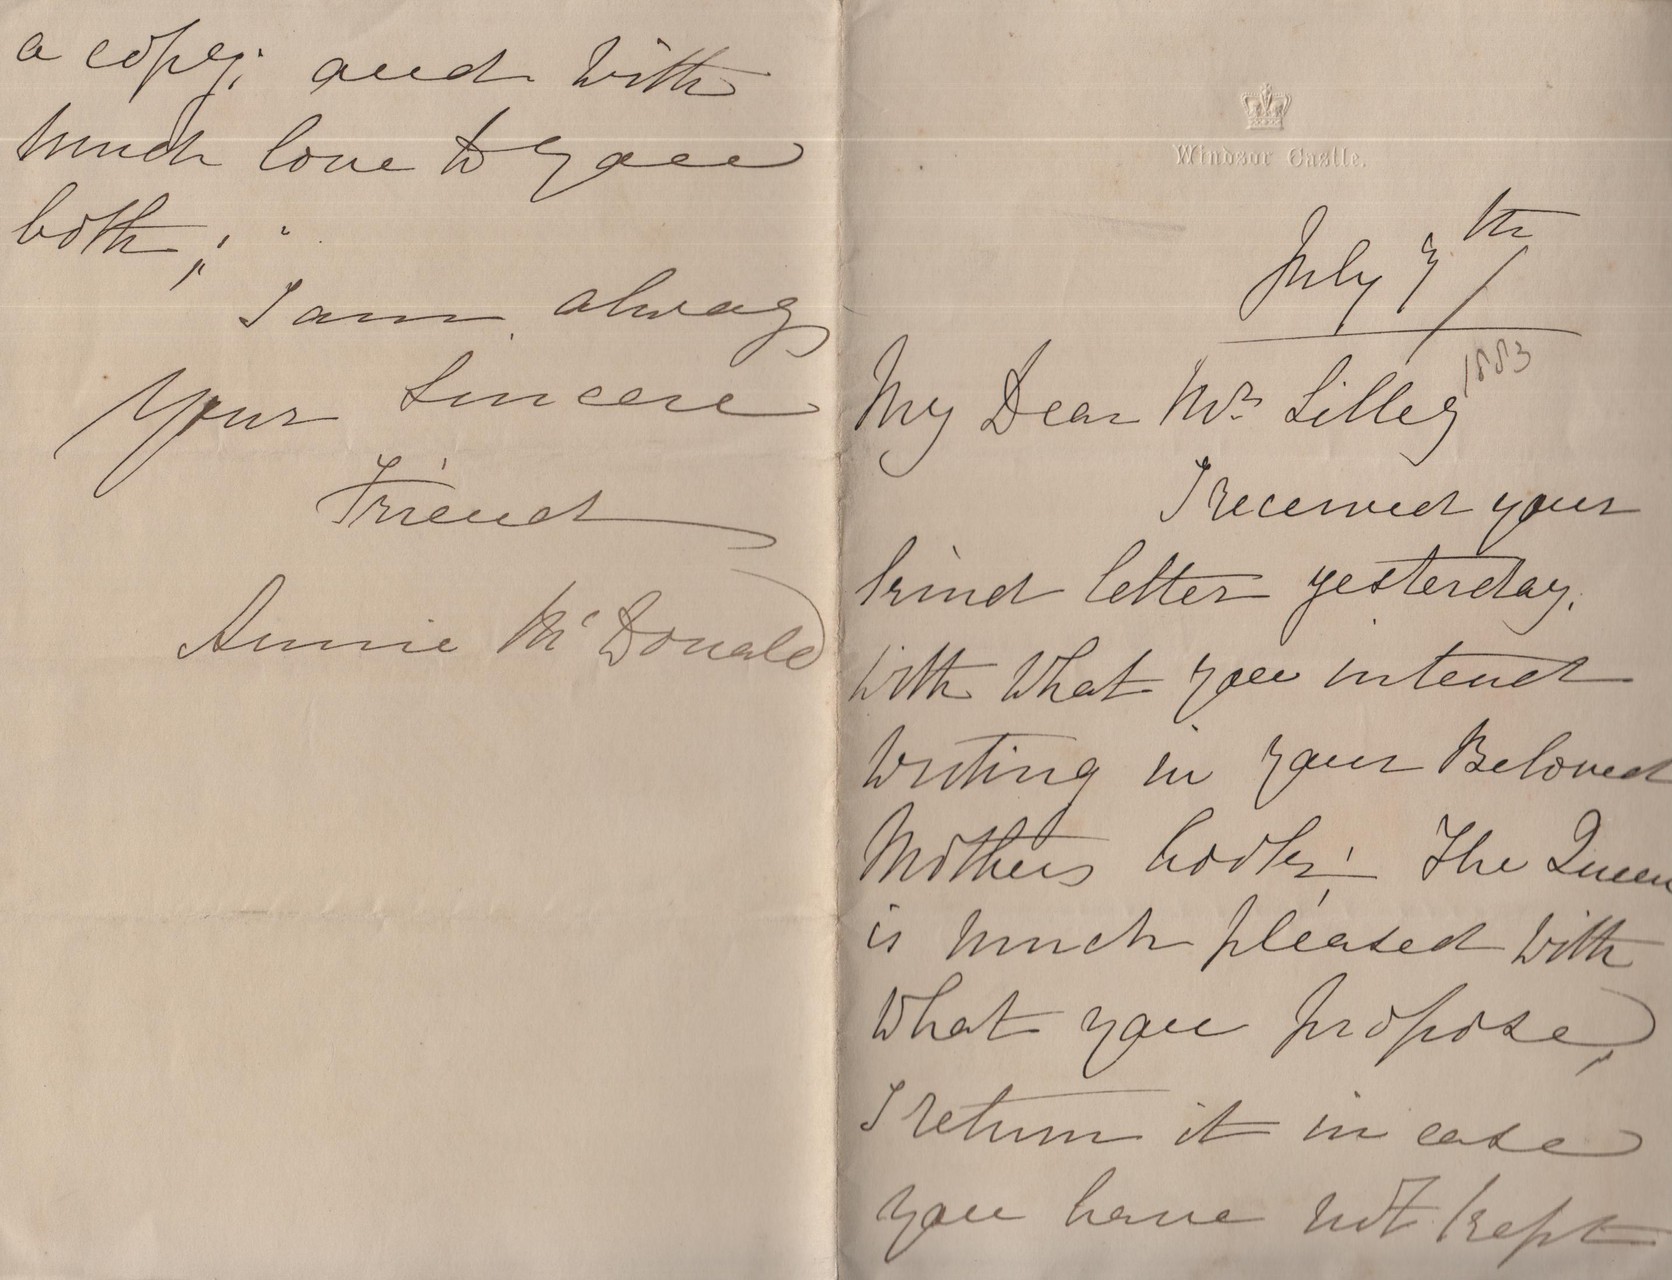 Windsor Castle.
July 7th
1883
My Dear Mrs Lilley
I received your
kind letter yesterday.
With What you intend
Writing in your Beloved
Mothers book; The Queen
is much pleased With
What you propose,
I return it in case
you have not kept
a copy; and With
much love to you
both,
I am always
Your Sincere
Friend
Annie McDonald